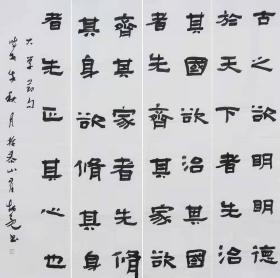 古之欲明明德
於天下者先治
其國欲治其國
者先齊其家欲
齊其家者先脩
其身欲脩其身
者先正其心也
大學節句
秋月於泰山